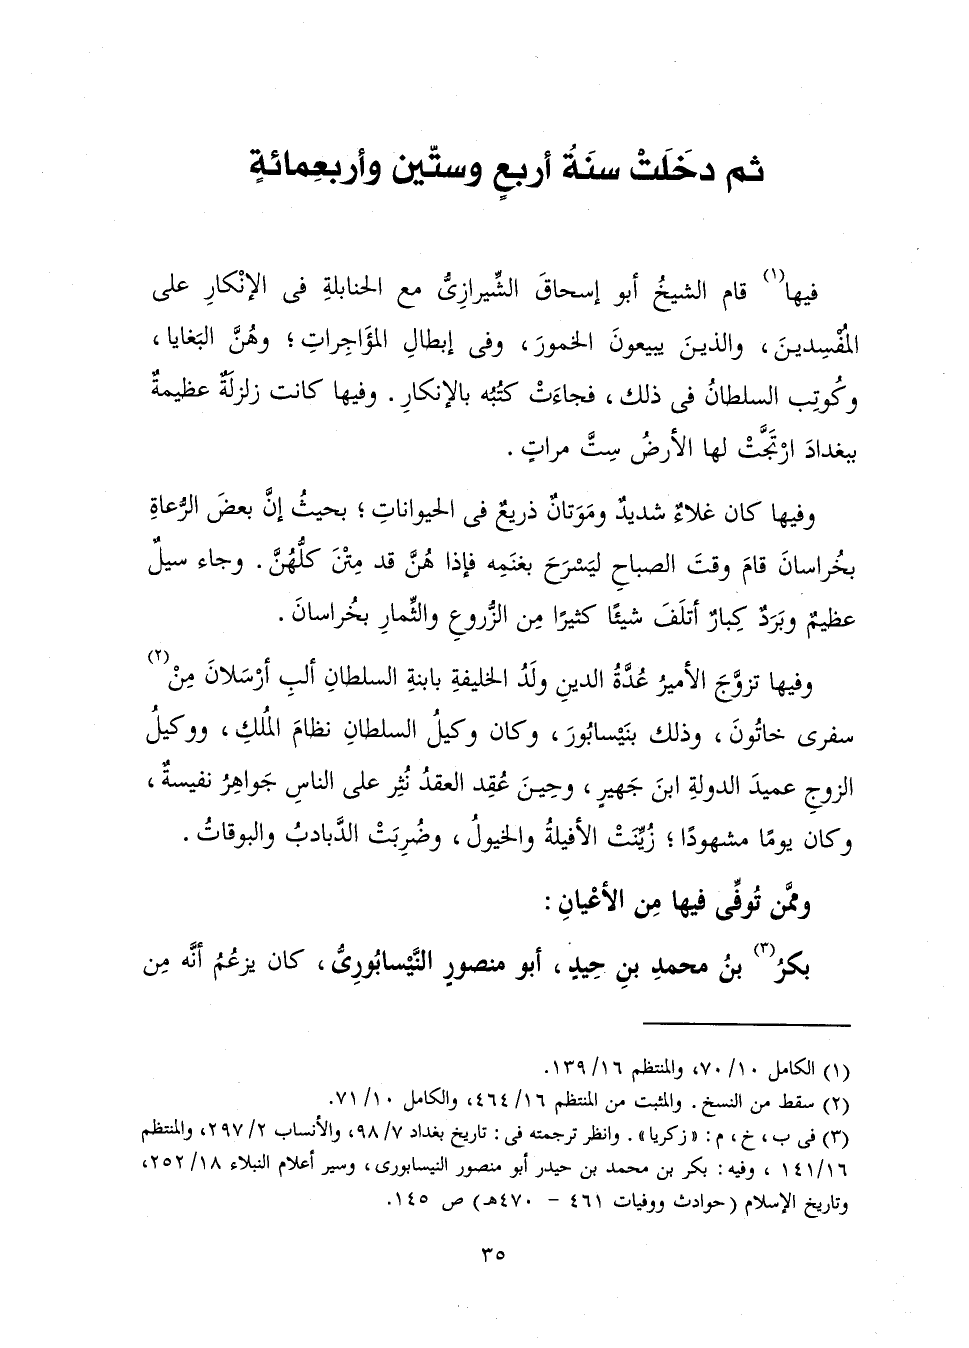 ثم دخَلَتْ سنَةُ أربعٍ وستّين وأربعِمائةٍ
فيها(١) قام الشيخُ أبو إسحاقَ الشِّيرازِىُّ مع الحنابلةِ فى الإنْكارِ على
المُفْسِدينَ، والذينَ يبيعونَ الخمورَ، وفى إبطالِ المؤَاجِراتِ؛ وهُنَّ البَغايا،
وكُوتِب السلطانُ فى ذلك، فجاءَتْ كتُبُه بالإنكارِ. وفيها كانت زلزلَةٌ عظيمةٌ
ببغدادَ ارْتَجَّتْ لها الأرضُ سِتَّ مراتٍ.
وفيها كان غلاءٌ شديدٌ ومَوَتانٌ ذريعٌ فى الحيواناتِ؛ بحيثُ إنَّ بعضَ الرُّعاةِ
بخُراسانَ قامَ وقتَ الصباحِ ليَسْرَحَ بغنَمِه فإذا هُنَّ قد مِتْنَ كلُّهُنَّ. وجاء سيلٌ
عظيمٌ وبَرَدٌ كِبارٌ أتلَفَ شيئًا كثيرًا مِن الزُّروعِ والثِّمارِ بخُراسانَ.
وفيها تزوَّجَ الأميرُ عُدَّةُ الدينِ ولَدُ الخليفةِ بابنةِ السلطانِ ألبِ أرْسَلانَ مِنْ(٢)
سفرى خاتُونَ، وذلك بنَيْسابُورَ، وكان وكيلُ السلطانِ نظامَ المُلكِ، ووكيلُ
الزوجِ عميدَ الدولةِ ابنَ جَهيرٍ، وحِينَ عُقِد العقدُ نُثِر على الناسِ جَواهِرُ نفيسةٌ،
وكان يومًا مشهودًا؛ زُيِّنَتْ الأفيلةُ والخيولُ، وضُرِبَتْ الدَّبادبُ والبوقاتُ.
وممَّن تُوفِّى فيها مِن الأعْيانِ:
بكرُ(٣) بنُ محمدِ بنِ حِيدٍ، أبو منصورٍ النَّيْسابُورِىُّ، كان يزعُمُ أنَّه مِن
(١) الكامل ١٠/ ٧٠، والمنتظم ١٦/ ١٣٩.
(٢) سقط من النسخ. والمثبت من المنتظم ١٦/ ٤٦٤، والكامل ١٠/ ٧١.
(٣) فى ب، خ، م: «زكريا». وانظر ترجمته فى: تاريخ بغداد ٧/ ٩٨، والأنساب ٢/ ٢٩٧، والمنتظم
١٦/ ١٤١، وفيه: بكر بن محمد بن حيدر أبو منصور النيسابورى، وسير أعلام النبلاء ١٨/ ٢٥٢،
وتاريخ الإسلام (حوادث ووفيات ٤٦١ - ٤٧٠هـ) ص ١٤٥.
٣٥